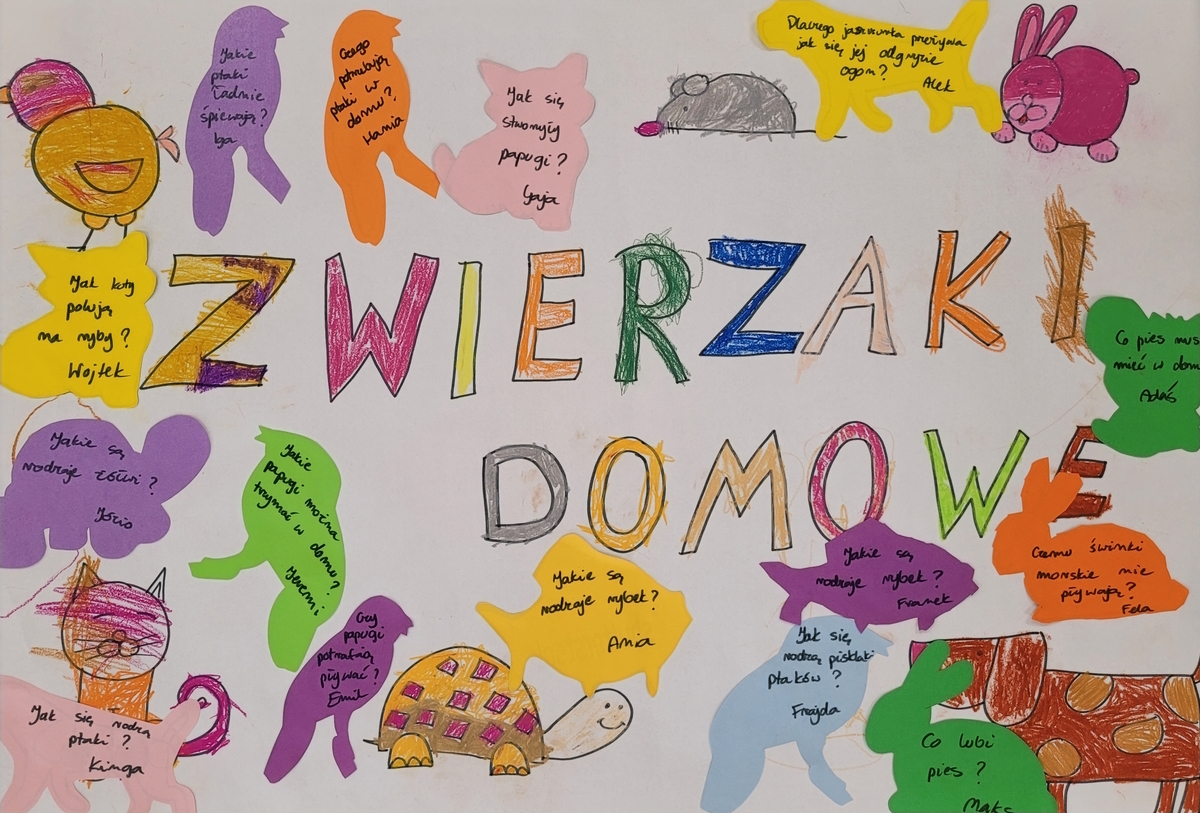 Jakie
ptaki
ładnie
śpiewają?
Iga
Czego
potrzebują
ptaki w
domu?
Hania
Jak się
stworzyły
papugi?
Gaja
Dlaczego jaszczurka przeżywa
jak się jej odgryzie
ogon?
Alek
ZWIERZAKI
DOMOWE
Jak koty
polują
na ryby?
Wojtek
Co pies mus
mieć w dom
Adaś
Jakie są
rodzaje żółwi?
Józio
Jakie
papugi można
trzymać w domu?
Jeremi
Czy
papugi
potrafią
pływać?
Emil
Jakie są
rodzaje rybek?
Ania
Jakie są
rodzaje rybek?
Franek
Czemu świnki
morskie nie
pływają?
Fela
Jak się
rodzą pisklaki
ptaków?
Frajda
Jak się rodzą
ptaki?
Kinga
Co lubi
pies?
Maks